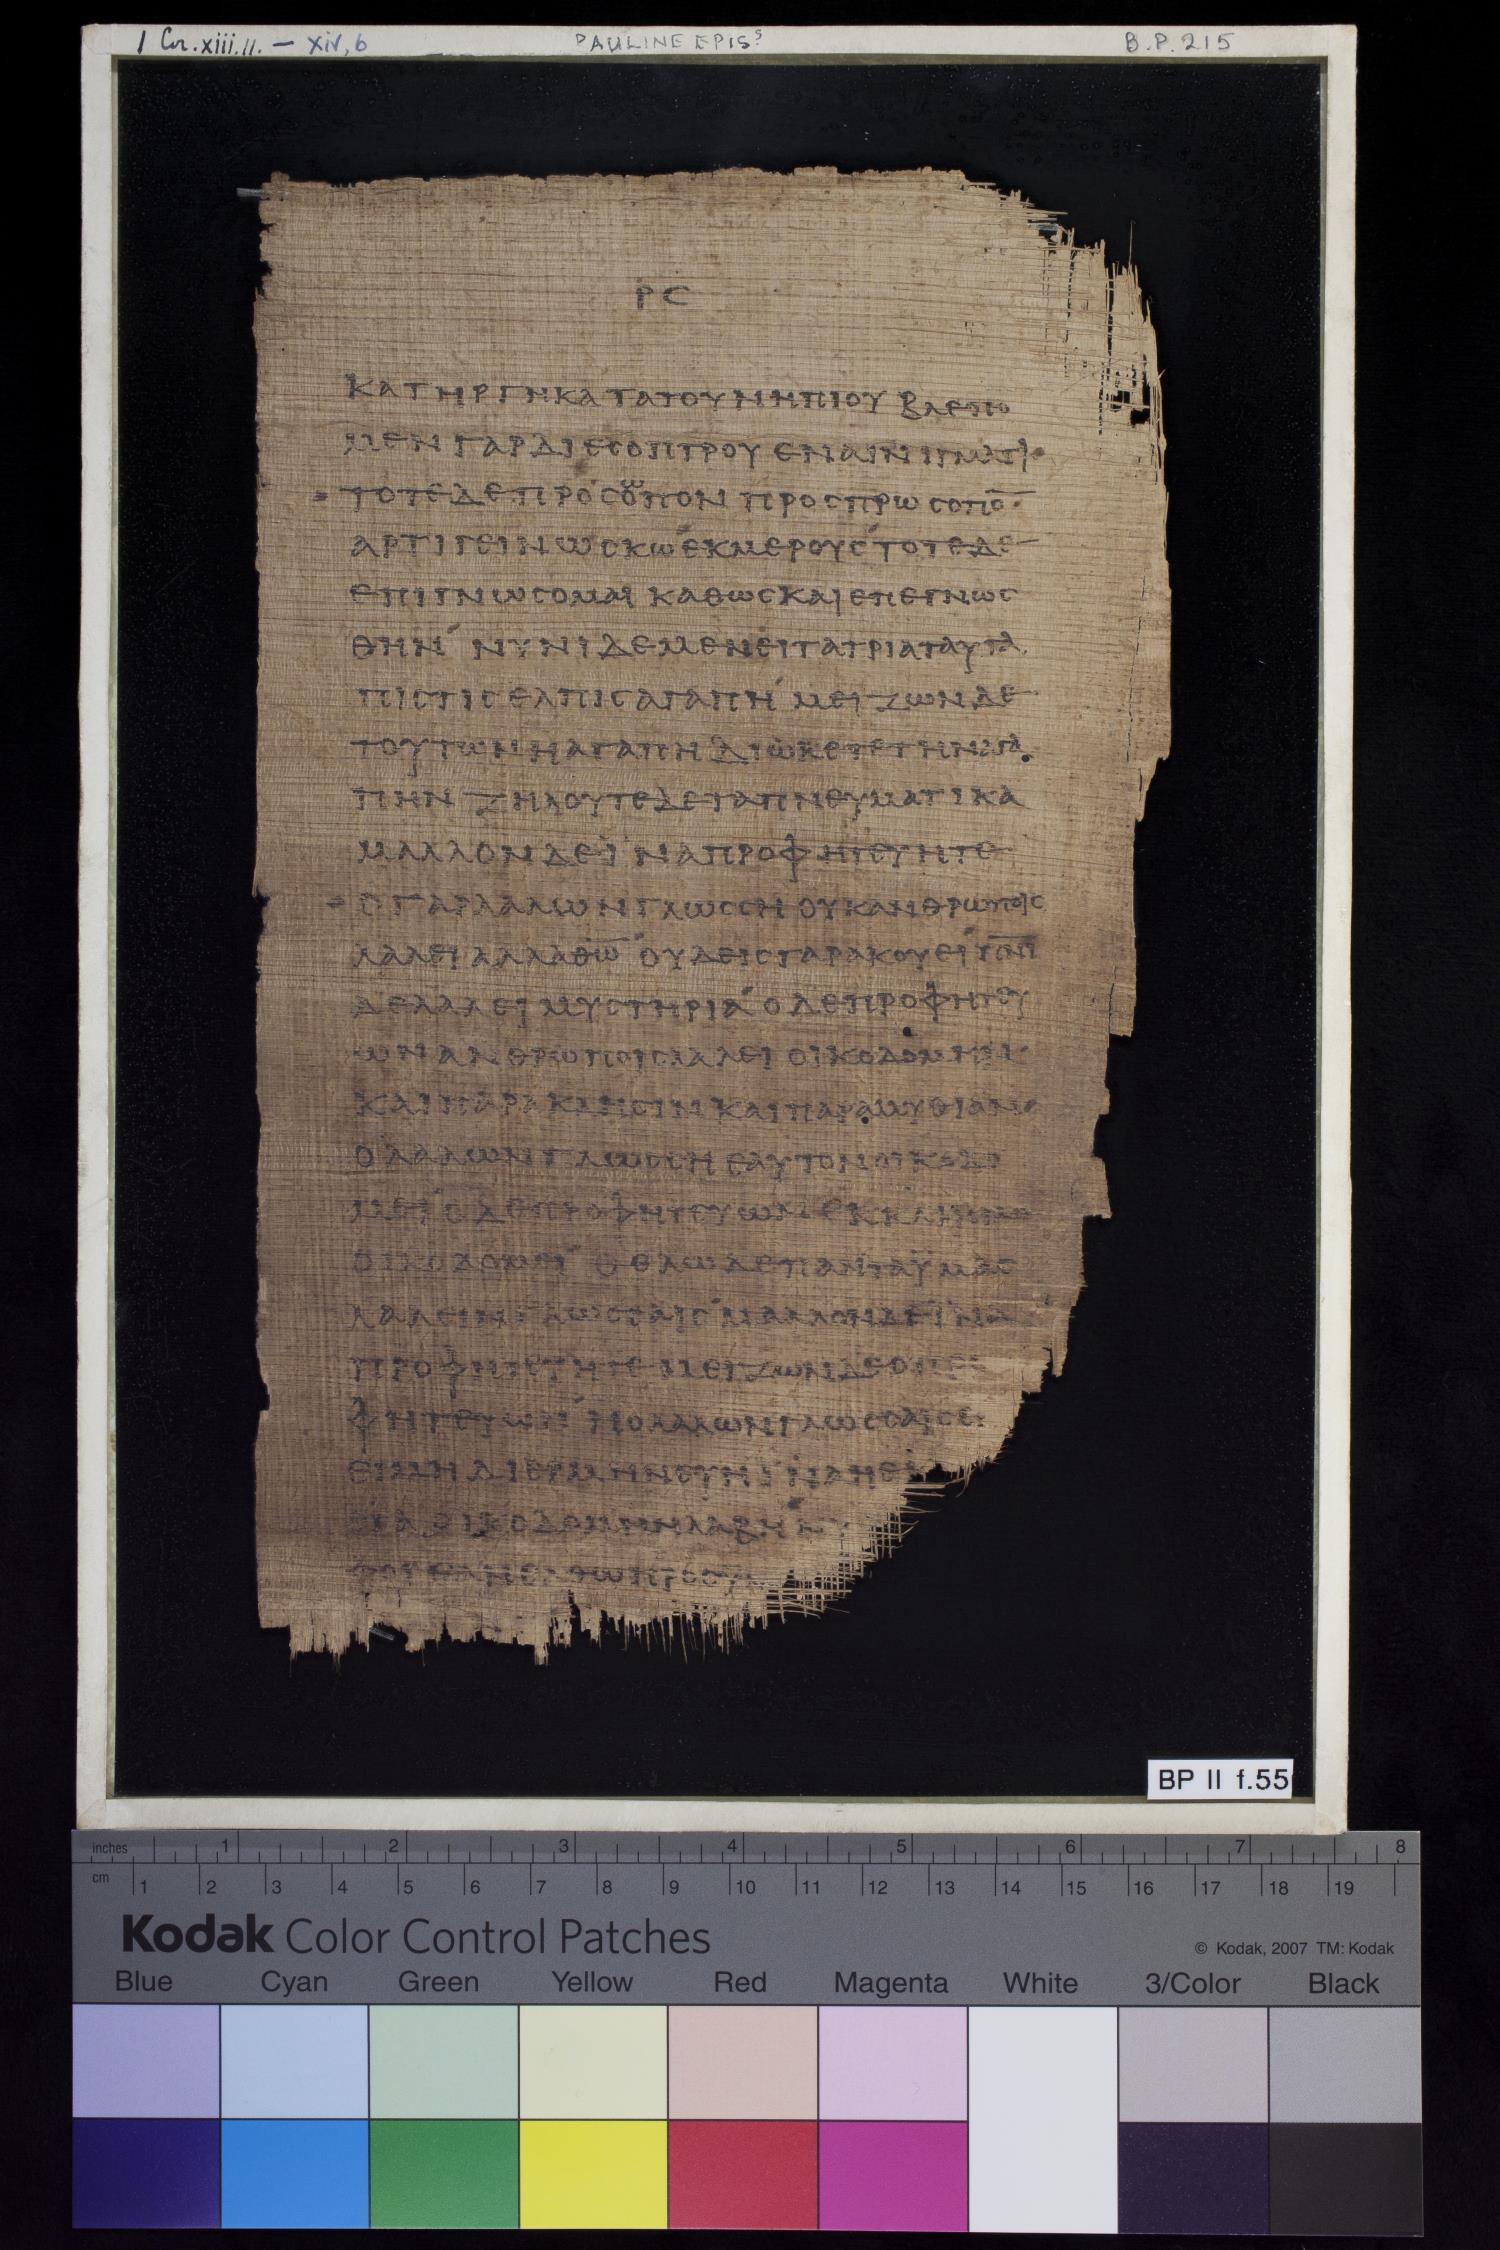 1 Cor. xiii. 11. — xiv, 6
PAULINE EPISS
B.P. 215
ΡϹ
ΚΑΤΗΡΓΗΚΑ ΤΑΤΟΥΝΗΠΙΟΥ ΒΛΕΠΟ
ΜΕΝ ΓΑΡ ΔΙ ΕϹΟΠΤΡΟΥ ΕΝ ΑΙΝΙΓΜΑΤΙ
ΤΟΤΕ ΔΕ ΠΡΟϹΩΠΟΝ ΠΡΟϹ ΠΡΩϹΟΠΟ̅
ΑΡΤΙ ΓΕΙΝΩϹΚΩ ΕΚ ΜΕΡΟΥϹ ΤΟΤΕ ΔΕ
ΕΠΙΓΝΩϹΟΜΑΙ ΚΑΘΩϹ ΚΑΙ ΕΠΕΓΝΩϹ
ΘΗΝ ΝΥΝΙ ΔΕ ΜΕΝΕΙ ΤΑ ΤΡΙΑ ΤΑΥΤΑ
ΠΙϹΤΙϹ ΕΛΠΙϹ ΑΓΑΠΗ ΜΕΙΖΩΝ ΔΕ
ΤΟΥΤΩΝ Η ΑΓΑΠΗ ΔΙΩΚΕΤΕ ΤΗΝ ΑΓΑ
ΠΗΝ ΖΗΛΟΥΤΕ ΔΕ ΤΑ ΠΝΕΥΜΑΤΙΚΑ
ΜΑΛΛΟΝ ΔΕ ΪΝΑ ΠΡΟΦΗΤΕΥΗΤΕ
Ο ΓΑΡ ΛΑΛΩΝ ΓΛΩϹϹΗ ΟΥΚ ΑΝΘΡΩΠΟΙϹ
ΛΑΛΕΙ ΑΛΛΑ Θ̅Ω̅ ΟΥΔΕΙϹ ΓΑΡ ΑΚΟΥΕΙ
ΔΕ ΛΑΛΕΙ ΜΥϹΤΗΡΙΑ Ο ΔΕ ΠΡΟΦΗΤΕΥ
ΩΝ ΑΝΘΡΩΠΟΙϹ ΛΑΛΕΙ ΟΙΚΟΔΟΜΗΝ
ΚΑΙ ΠΑΡΑΚΛΗϹΙΝ ΚΑΙ ΠΑΡΑΜΥΘΙΑΝ
Ο ΛΑΛΩΝ ΓΛΩϹϹΗ ΕΑΥΤΟΝ ΟΙΚΟΔΟ
ΜΕΙ Ο ΔΕ ΠΡΟΦΗΤΕΥΩΝ ΕΚΚΛΗϹΙΑΝ
ΟΙΚΟΔΟΜΕΙ ΘΕΛΩ ΔΕ ΠΑΝΤΑϹ ΫΜΑϹ
ΛΑΛΕΙΝ ΓΛΩϹϹΑΙϹ ΜΑΛΛΟΝ ΔΕ ΪΝΑ
ΠΡΟΦΗΤΕΥΗΤΕ ΜΕΙΖΩΝ ΔΕ Ο ΠΡΟ
ΦΗΤΕΥΩΝ Η Ο ΛΑΛΩΝ ΓΛΩϹϹΑΙϹ
ΕΙ ΜΗ ΔΙΕΡΜΗΝΕΥΗ ΪΝΑ Η
ΟΙΚΟΔΟΜΗΝ ΛΑΒΗ
ΕΛΘΩ ΠΡΟϹ
BP II f.55
inches 1 2 3 4 5 6 7 8
cm 1 2 3 4 5 6 7 8 9 10 11 12 13 14 15 16 17 18 19
Kodak Color Control Patches
© Kodak, 2007 TM: Kodak
Blue Cyan Green Yellow Red Magenta White 3/Color Black